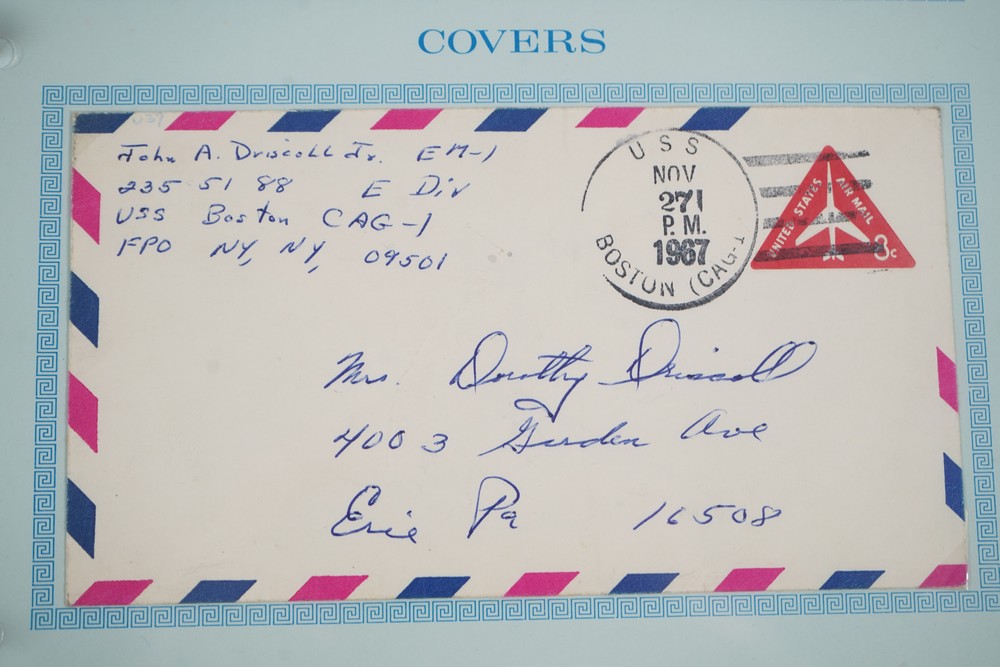 COVERS
U37
John A. Driscoll Jr. EM-1
235 51 88 E Div
USS Boston CAG-1
FPO NY, NY, 09501
USS
NOV
271
P.M.
1967
BOSTON (CAG-1
UNITED STATES
AIR MAIL
8c
Mrs. Dorothy Driscoll
4003 Garden Ave
Erie Pa 16508